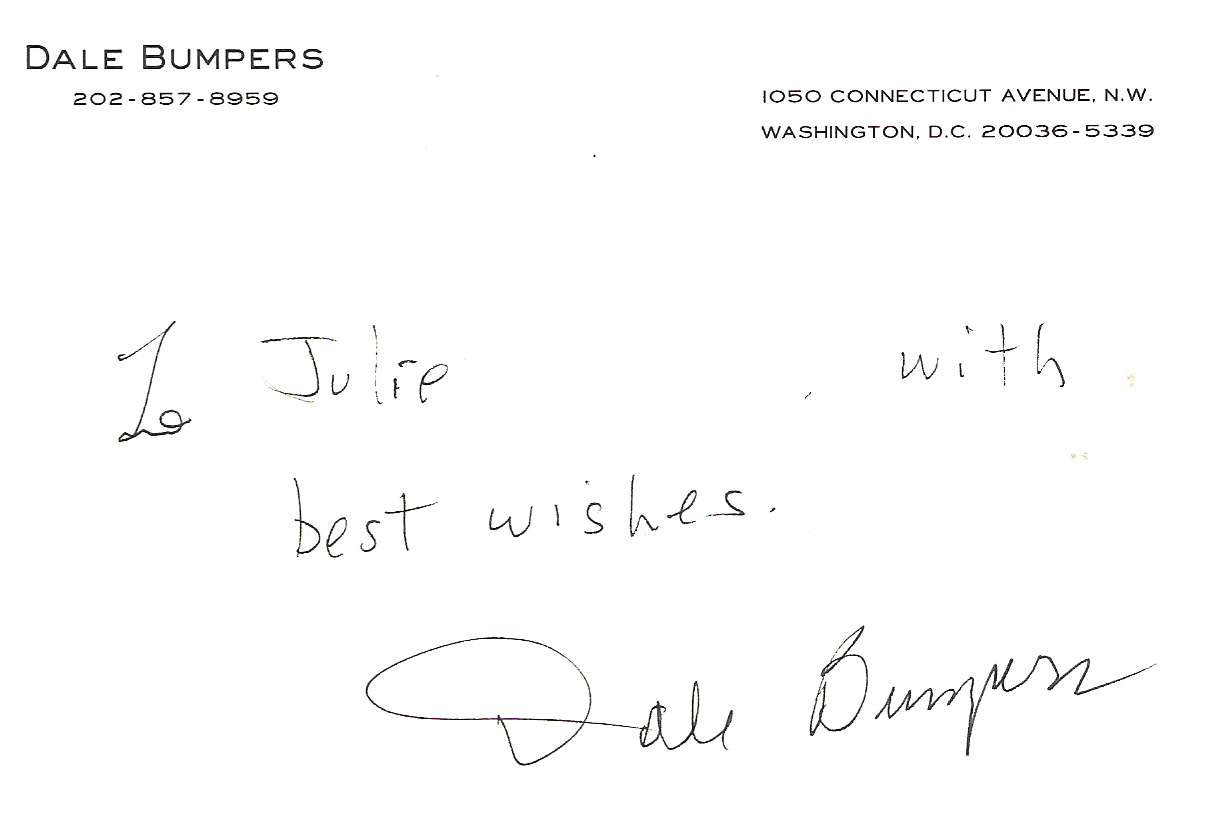 DALE BUMPERS
202-857-8959
1050 CONNECTICUT AVENUE, N.W.
WASHINGTON, D.C. 20036-5339
To Julie , with
best wishes.
Dale Bumpers